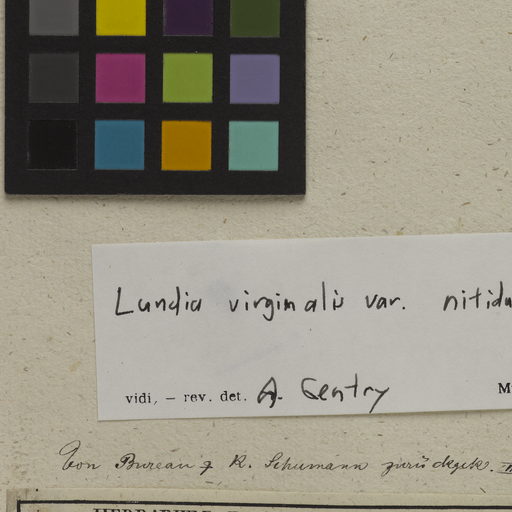 Lundia virginalis var. nitidu
vidi, – rev. det. A. Gentry M
Von Bureau & K. Schumann zurückgek.